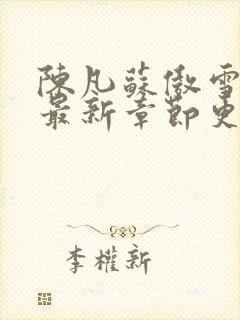 陳凡蘇傲雪
最新章節更
李權新